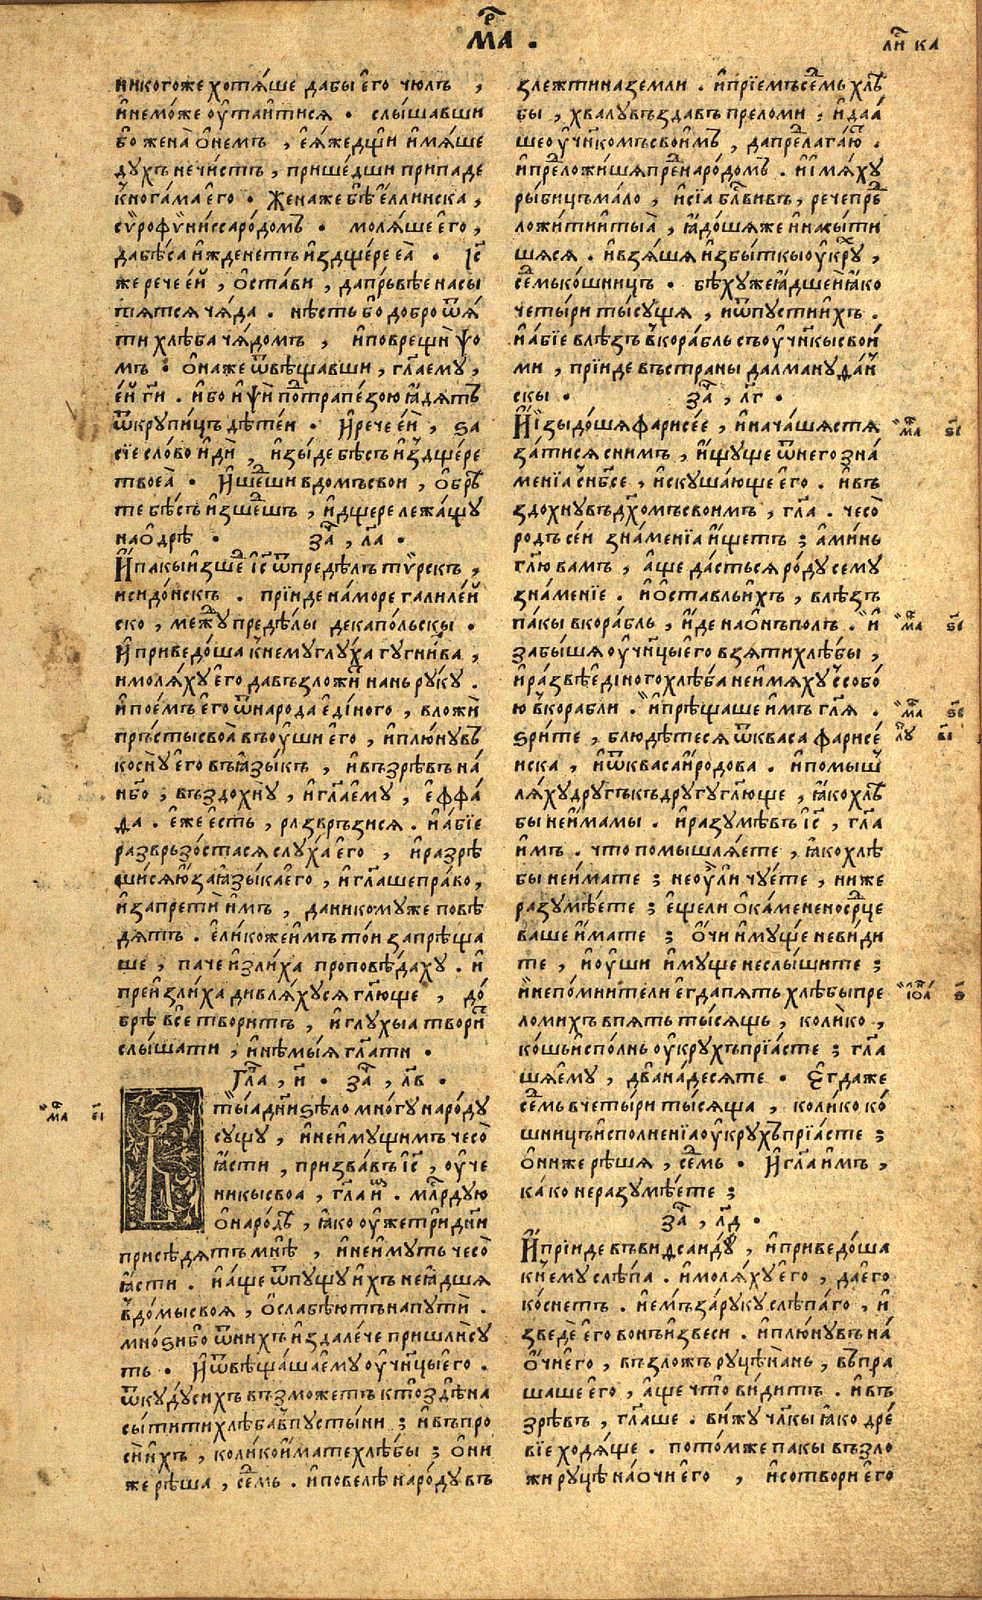 Ма҃р .
ли҃ ка
никогоже хотѧ́ше дабы є҆го чюлъ ,
и҆неможе ᲂу҆таитисѧ . слышавши
бо жена ѻ҆немъ , е҆ѧжедщи и҆мѧше
духъ нечистъ , пришедши припаде
к̾ногама его . Женаже бѣ е҆ллинска ,
сѵ̈рофѵни́сса родомъ . молѧше его ,
дабѣса и҆жденетъ и҆здщере еа̀ . Іс҃
же рече е҆й , ѡ҆стави , дапрьвѣе насы
тѧтсѧ чѧ́да . нѣсть бо добро ѿѧ
ти хлѣба чѧ́домъ , и҆поврещи ѱо
мъ . ѻ҆наже ѿвѣщавши , гл҃аему ,
е҆й ги҃ . и҆бо и҆ ѱи подтрапе́зою ꙗ҆дѧтъ
ѿкрупицъ дѣтеи . И҆рече е҆й , ѕа
сїе слово и҆ди , и҆зыде бѣсъ и҆здщере
твоеа̀ . И҆шедши вдомъ свои , ѡ҆брѣ
те бѣсъ и҆зшедшъ , и҆дщере лежа́щу
наѻдрѣ . за҃ , ла҃ .
И҆пакы и҆зше і҆с҃ ѿпредѣлъ тѵрскъ ,
и҆сидо́нскъ . прїиде на́море галиле́й
ско , между предѣлы декапо́льскы .
И҆приведо́ша к̾нему глу́ха гугни́ва ,
и҆молѧ́ху е҆го давъзложи́т нань руку .
и҆поемъ е҆го ѿнарода е҆ди́ного , вложи
пръсты своа̀ въᲂу́ши е҆го , и҆плю́нувъ
косну е҆го въꙗ҆зыкъ , и҆възрѣвъ на́
нб҃о , въздохну , и҆гл҃а е҆му , е҆ффа́
ѳа . е҆же е҆сть , развръзисѧ . и҆а҆бїе
разврьзо́стасѧ слу́ха е҆го , и҆разрѣ
шисѧ ю҆за ꙗ҆зыка е҆го , и҆гл҃аше пра́во ,
и҆запрети и҆мъ , даникомуже повѣ
дѧтъ . е҆ликоже и҆мъ то́и запрѣща
ше , паче и҆злиха проповѣдаху . и҆
преи҆злиха дивлѧ́хусѧ гл҃юще , до́
брѣ все творитъ , и҆глухыа твори́т
слышати , и҆нѣмыѧ гл҃ати .
Гла҃ , и҃ . за҃ , лв҃ .
Въ ты́ѧ дн҃и ѕѣло многу наро́ду
сущу , и҆неи҆мущимъ чесо
ꙗ҆сти , призва́въ і҆с҃ , ᲂу҆че
никы своа , гл҃а и҆м . млр҃дую
ѻ҆наро́дѣ , ꙗ҆ко ᲂу҆же три дн҃и
присѣдѧтъ мнѣ , и҆неи҆муть чесо
ꙗ҆сти . и҆а҆ще ѿпущу и҆хъ не ꙗ҆дшѧ
в̾до́мы своѧ , ѡ҆слабѣютъ напути .
мно́ѕи бо ѿнихъ и҆здале́че пришли су
ть . И҆ѿвѣща́ша е҆му ᲂу҆чн҃цы е҆го .
ѿкуду сихъ възможетъ кто здѣ на
сытити хлѣба в̾пустыни ; и҆въпро
си и҆хъ , колико и҆мате хлѣбы ; ѻ҆ни
же рѣша , седмь . и҆повелѣ наро́ду въ
злещи наземли . и҆прїемъ седмь хлѣ
бы , хвалу въздавъ преломи ; и҆даа́
ше ᲂу҆ченикомъ своимъ , дапредлага́ют .
и҆предложи́шѧ преднаро́домъ . и҆и҆мѧ́ху
ры́бицъ мало , и҆сїа благословивъ , рече пред
ложити и҆тыа̀ , ꙗ҆до́шѧже и҆насыти
шѧсѧ . и҆взѧ́шѧ и҆збы́ткы ᲂу҆крух ,
седмь ко́шницъ . бѣхуже ꙗ҆дшеи ꙗ҆ко
четы́ри ты́сущѧ , и҆ѿпусти и҆хъ .
и҆а҆бїе влѣзъ в̾кора́бль съᲂу҆ченикы свои́
ми , прїиде въстраны далмануѳа́н
скы . за҃ , лг҃ .
И҆и҆зыдо́шѧ фарисе́е , и҆нача́шѧ стѧ
за́тисѧ снимъ , и҆́щуще ѿнего зна́
менїа с̾нб҃се , и҆скуша́юще е҆го . и҆въ
здохнувъ дх҃омъ своимъ , гл҃а . чесо
родъ сеи зна́менїа и҆щетъ ; а҆ми́нь
гл҃ю вамъ , а҆ще да́стьсѧ ро́ду сему
зна́менїе . и҆ѡ҆ставль и҆хъ , влѣзъ
па́кы вкорабль , и҆де наѻ҆нъполъ . и҆
забы́шѧ ᲂу҆чн҃цы е҆го взѧти хлѣбы ,
и҆ра́звѣ е҆ди́ного хлѣба неи҆мѧ́ху с̾собо́
ю в̾корабли . и҆прѣщаше и҆мъ гл҃ѧ .
ѕри́те , блюдѣтесѧ ѿкваса фарисе́
иска , и҆ѿкваса и҆родова . и҆помыш
лѧ́ху другъ къдругу гл҃юще , ꙗ҆ко хлѣ
бы не и҆мамы . и҆разумѣвъ і҆с҃ , гл҃а
и҆мъ . что помышлѧете , ꙗ҆ко хлѣ
бы не и҆мате ; не ᲂу҆ ли чу́ете , ниже
разумѣете ; е҆ще ли ѻ҆ка́менено срдце
ваше и҆мате ; ѻ҆́чи и҆му́ще невиди
те , и҆ᲂу҆ши и҆муще неслы́шите ;
и҆непо́мните ли е҆гда пѧть хлѣбы пре
ломихъ впѧть ты́сѧщь , коли́ко ,
ко́шь и҆спо́лнь ᲂу҆крухъ прїа́сте ; гл҃а
шѧ е҆му , двана́десѧте . Е҆гдаже
седмь вчеты́ри ты́сѧща , колико ко́
шницъ и҆сполненїа ᲂу҆крухъ прїа́сте ;
ѻ҆ниже рѣшѧ , седмь . И҆гл҃а и҆мъ ,
ка́ко неразумѣете ;
за҃ , лд҃ .
И҆прїиде въвидсаиду , и҆приведо́ша
к̾нему слѣпа . и҆молѧ́ху е҆го , да е҆го
ко́снетъ . и҆емъ за́руку слѣпа́го , и҆
зведе е҆го вонъ и҆звеси . и҆плюнувъ на́
ѻ҆чи е҆го , възложъ руцѣ на́нь , въпра
шаше е҆го , а҆ще что ви́дитъ . и҆въ
зрѣвъ , гл҃аше . ви́жу чл҃кы ꙗ҆ко дре́
вїе ходѧще . пото́мже пакы възло
жи руцѣ на́ѻчи е҆го , и҆сотвори е҆го
ма҃ ѕі҃
ма҃ ѕі҃
ма҃ ѕі҃
лу҃ ві҃
іѡа҃ ѕ҃
ма҃ еі҃